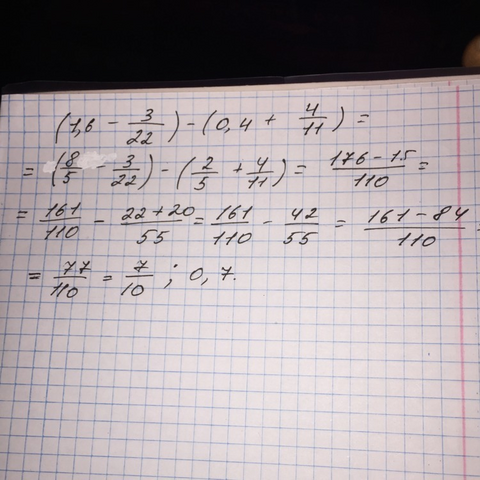 (1,6 - 3/22) - (0,4 + 4/11) =
= (8/5 - 3/22) - (2/5 + 4/11) = 176 - 15/110 =
= 161/110 - 22 + 20/55 = 161/110 - 42/55 = 161 - 84/110 =
= 77/110 = 7/10 ; 0,7.